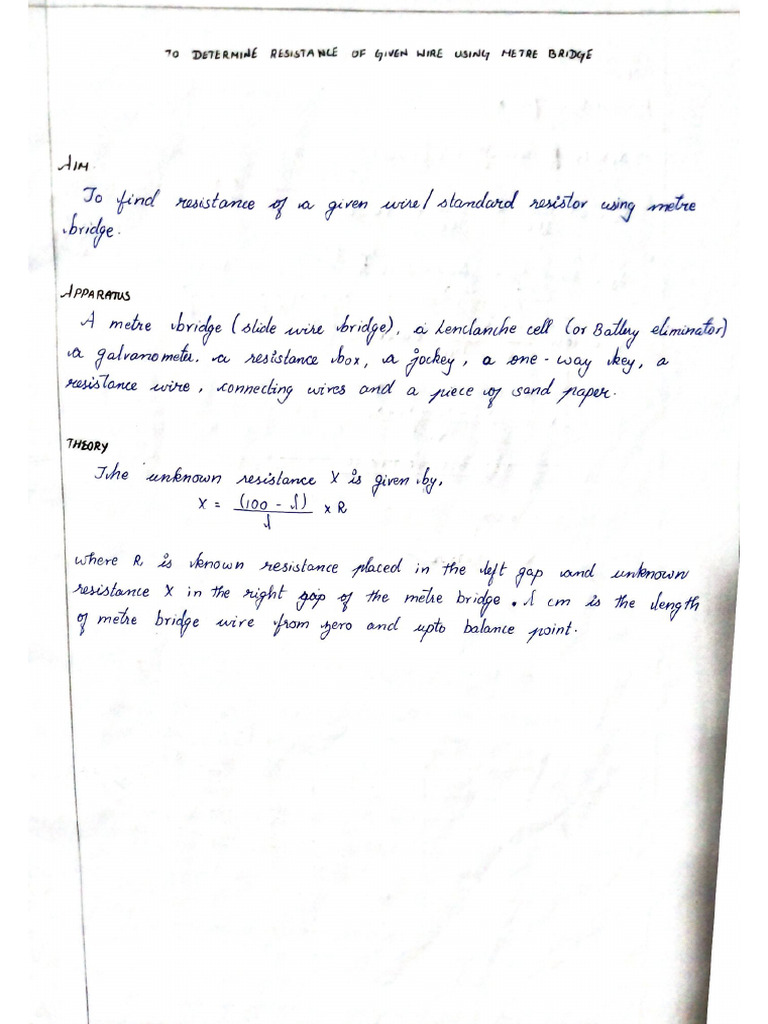 TO DETERMINE RESISTANCE OF GIVEN WIRE USING METRE BRIDGE
AIM
To find resistance of a given wire/standard resistor using metre
bridge.
APPARATUS
A metre bridge (slide wire bridge), a Lenclanche cell (or Battery eliminator)
a galvanometer, a resistance box, a jockey, a one-way key, a
resistance wire, connecting wires and a piece of sand paper.
THEORY
The unknown resistance X is given by,
X = (100 - l)/l x R
where R is known resistance placed in the left gap and unknown
resistance X in the right gap of the metre bridge. l cm is the length
of metre bridge wire from zero and upto balance point.